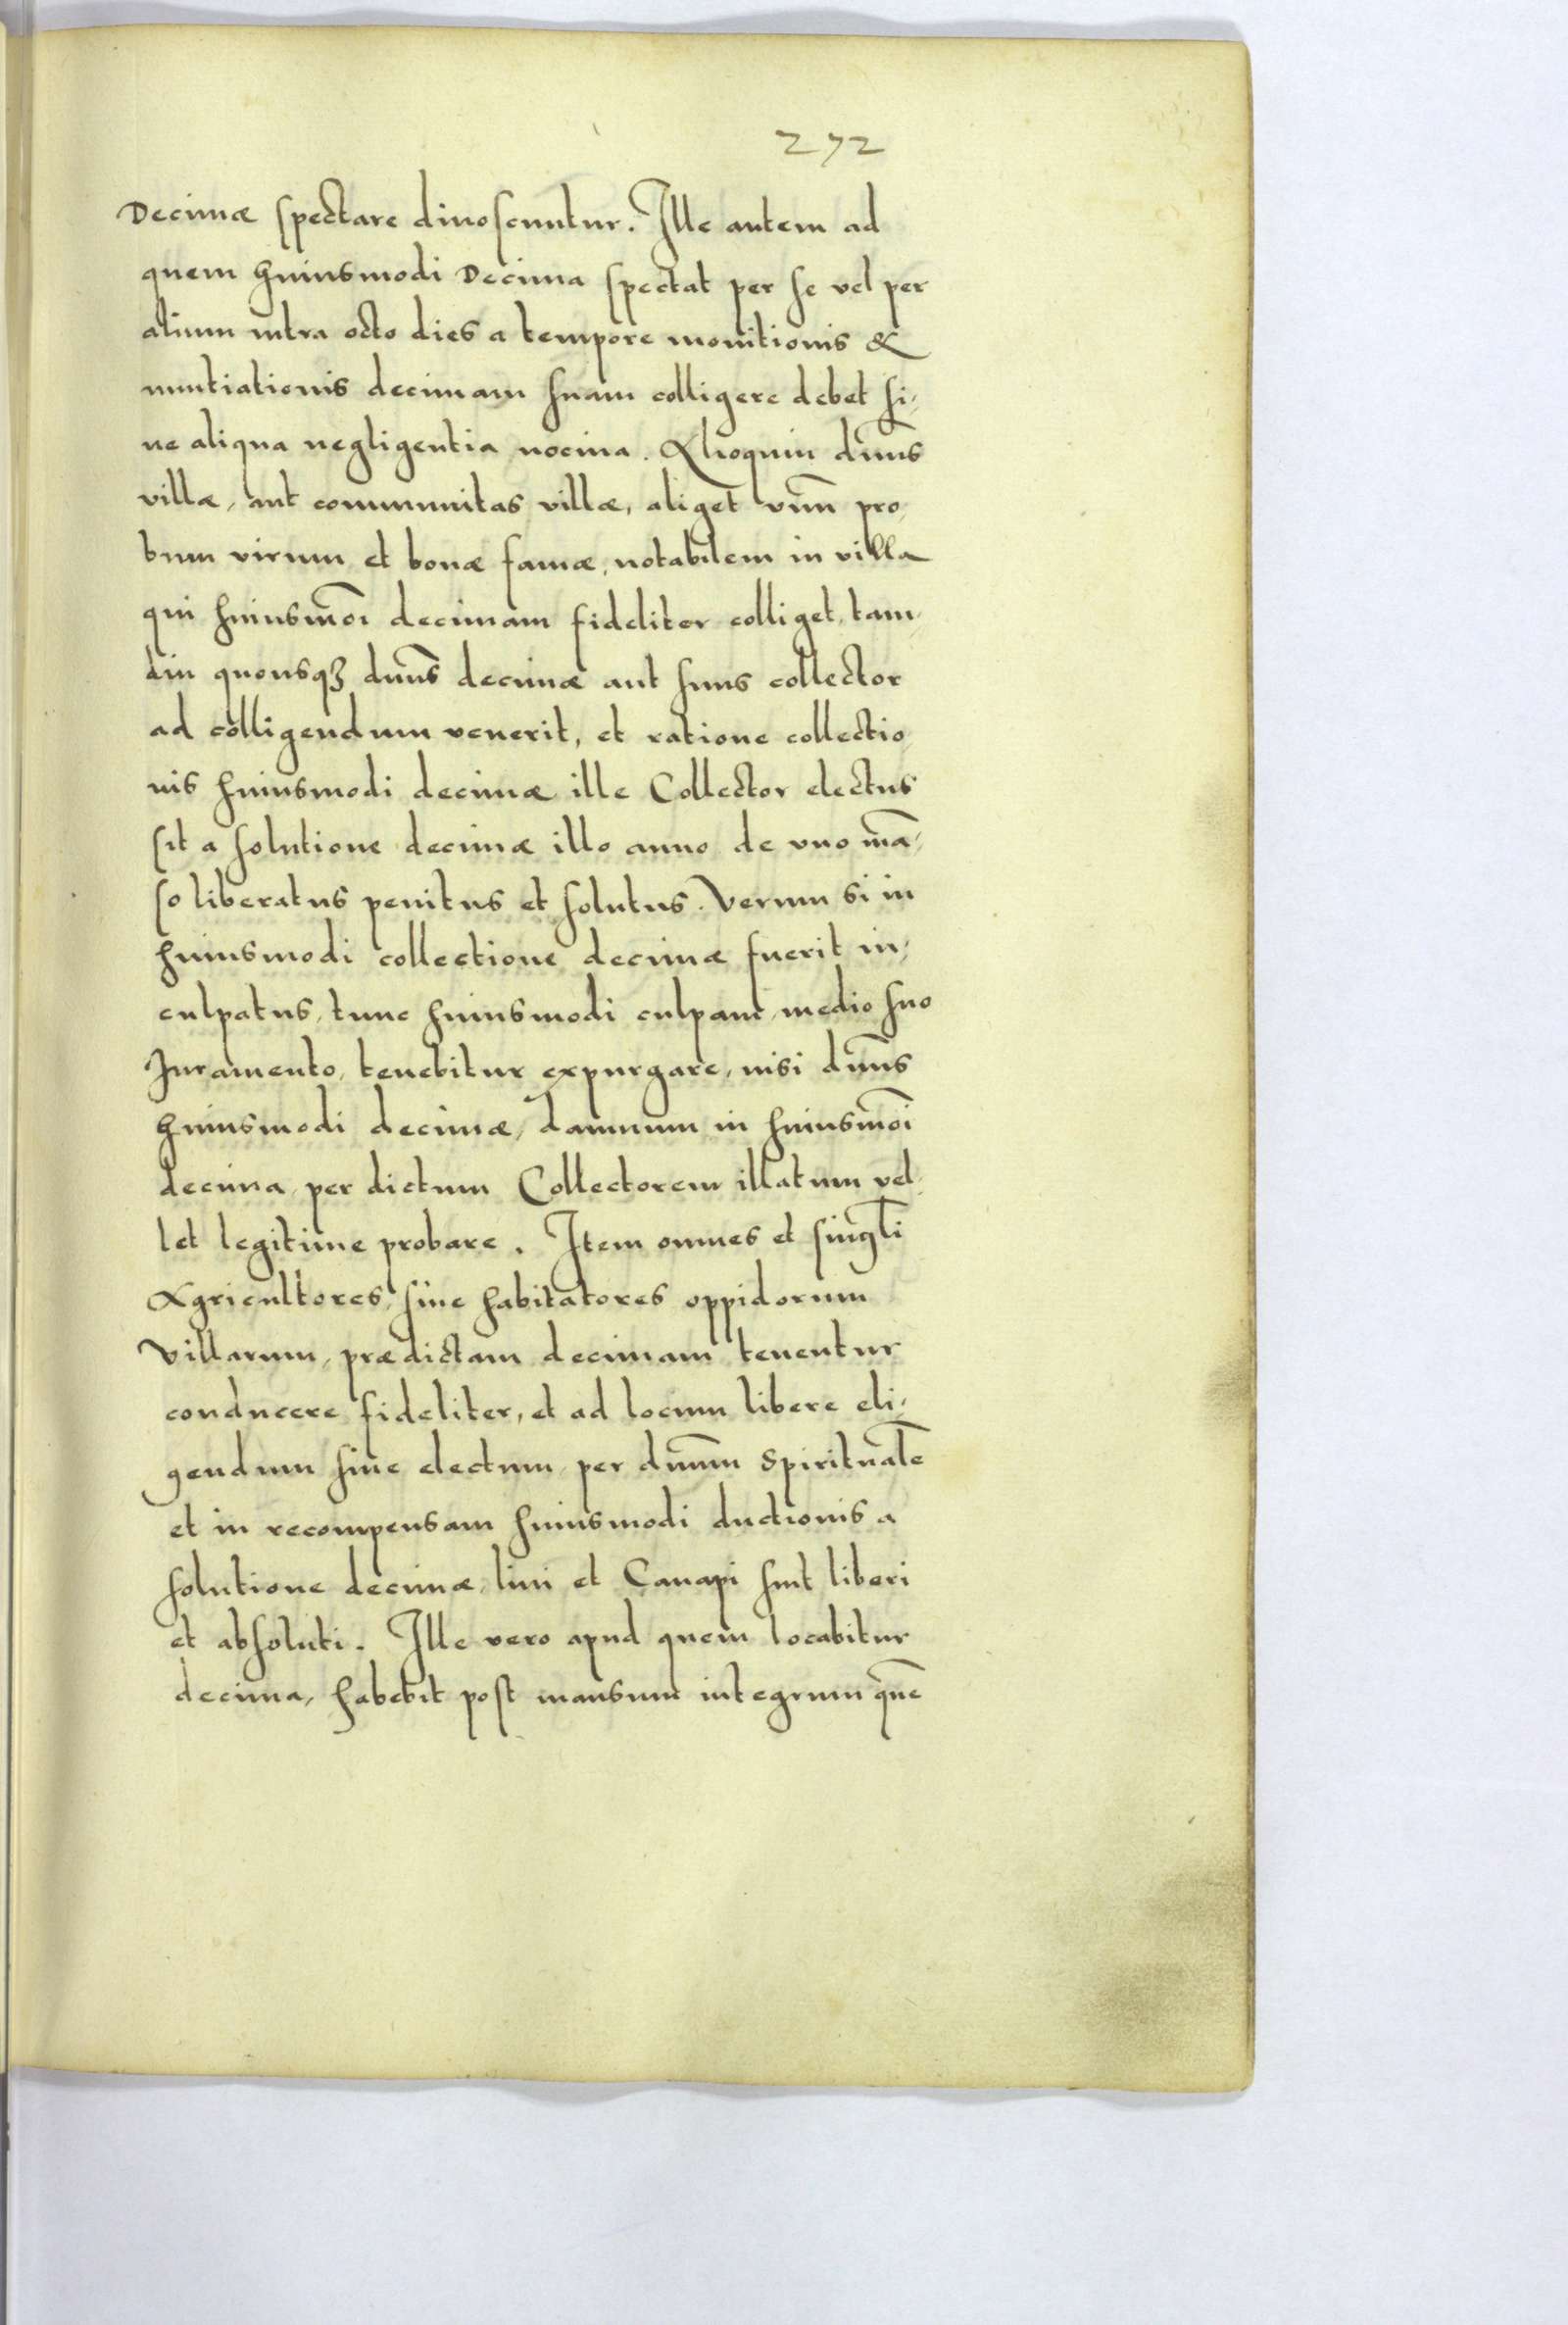 272
Decimæ spectare dinoscuntur. Ille autem ad
quem huiusmodi Decima spectat per se vel per
alium intra octo dies a tempore monitionis &
nuntiationis decimam suam colligere debet si,
ne aliqua negligentia nociua. Alioquin dnūs
villæ, aut communitas villæ, aliget vnū pro,
bum virum et bonæ famæ, notabilem in villa
qui huiusmōi decimam fideliter colliget, tam,
diu quousqꝫ dnūs decimæ aut suus collector
ad colligendum venerit, et ratione collectio,
nis huiusmodi decimæ ille Collector electus
sit a solutione decimæ illo anno de vno mā,
so liberatus penitus et solutus. Verum si in
huiusmodi collectione decimæ fuerit in,
culpatus, tunc huiusmodi culpam, medio suo
Juramento, tenebitur expurgare, nisi dnūs
huiusmodi decimæ, damnum in huiusmōi
decima, per dictum Collectorem illatum vel,
let legitime probare. Item omnes et singli
Agricultores, siue habitatores oppidorum
Villarum, prædictam decimam tenentur
conducere fideliter, et ad locum libere eli,
gendum siue electum, per dnūm Spiritualē
et in recompensam huiusmodi ductionis a
solutione decimæ, lini et Canapi sint liberi
et absoluti. Ille vero apud quem locabitur
decima, habebit post mansum integrum quē